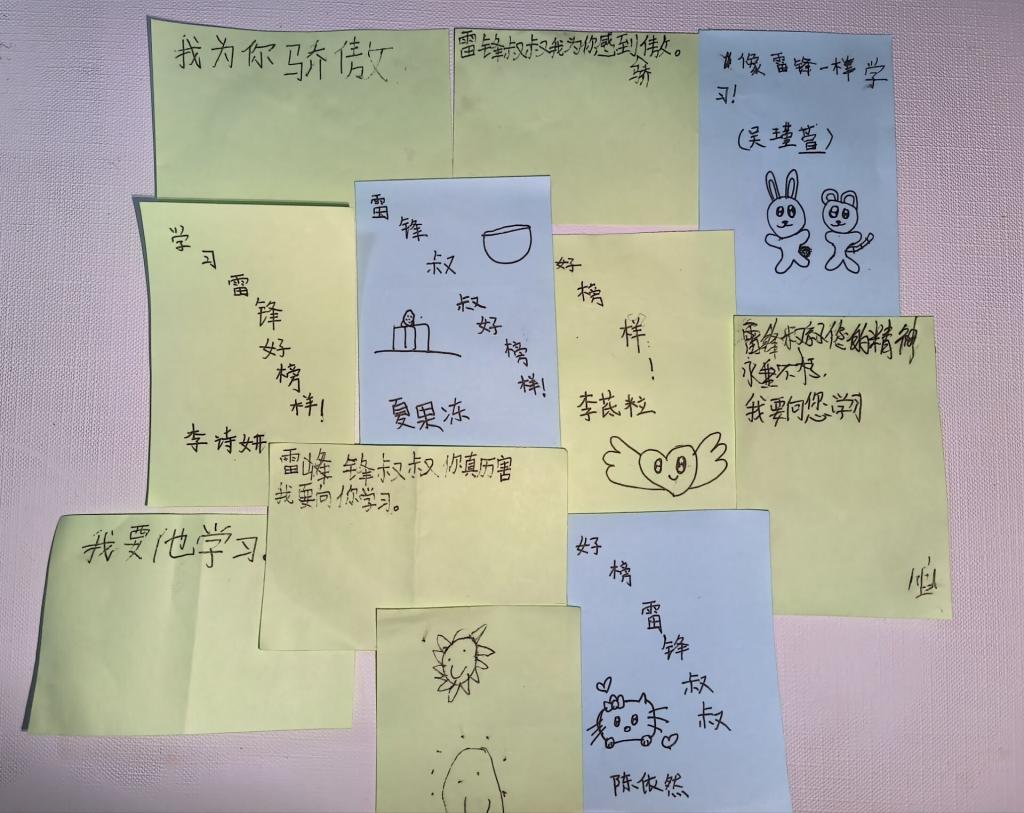 我为你骄傲
雷锋叔叔我为你感到傲。
骄
像雷锋一样学
习!
(吴瑾萱)
学习雷锋好榜样!
李诗妍
雷锋叔叔好榜样!
夏果冻
好榜样!
李菧粒
雷锋叔叔您的精神
永垂不朽.
我要向您学习
雷峰 锋叔叔你真历害
我要向你学习。
我要他学习.
好榜雷锋叔叔
陈依然